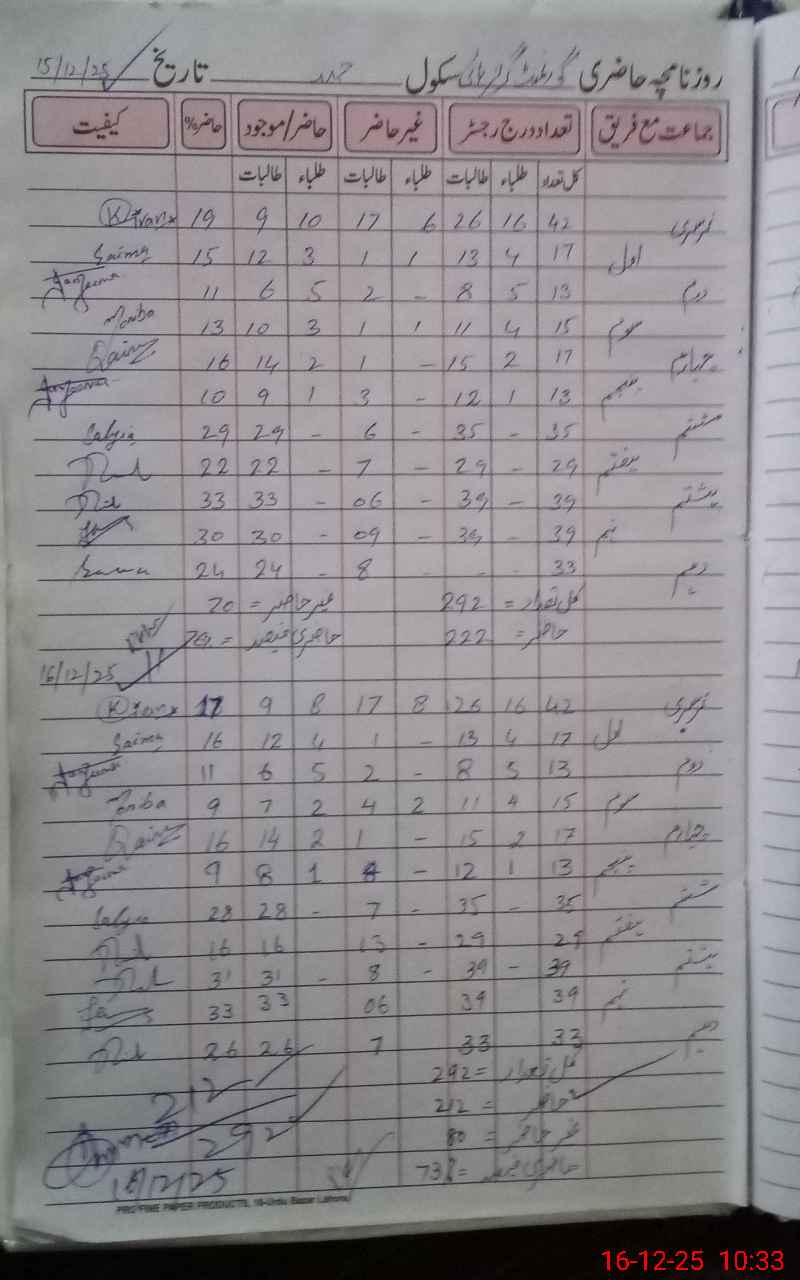 روزنامچہ حاضری گورنمنٹ گرلز ہائی سکول تاریخ 15/12/25
جماعت مع فریق تعداد درج رجسٹر غیر حاضر حاضر/موجود حاضر% کیفیت
کل تعداد طلباء طالبات طلباء طالبات طلباء طالبات
نرسری 42 16 26 6 17 10 9 19
اول 17 4 13 1 1 3 12 15 Saima
دوم 13 5 8 - 2 5 6 11
سوم 15 4 11 1 1 3 10 13
چہارم 17 2 15 - 1 2 14 16
پنجم 13 1 12 - 3 1 9 10
ششم 35 - 35 - 6 - 29 29
ہفتم 29 - 29 - 7 - 22 22
ہشتم 39 - 39 - 06 - 33 33
نہم 39 - 39 - 09 - 30 30
دہم 33 - - - 8 - 24 24
کل تعداد = 292 غیر حاضر = 70
حاضر = 222 حاضری فیصد =
16/12/25
نرسری 42 16 26 8 17 8 9 17
اول 17 4 13 - 1 4 12 16 Saima
دوم 13 5 8 - 2 5 6 11
سوم 15 4 11 2 4 2 7 9
چہارم 17 2 15 - 1 2 14 16
پنجم 13 1 12 - 1 8 9
ششم 35 - 35 - 7 - 28 28
ہفتم 29 29 - 13 16 16
ہشتم 39 - 39 - 8 - 31 31
نہم 39 39 06 33 33
دہم 33 33 7 26 26
کل تعداد = 292
حاضر = 212
غیر حاضر = 80
حاضری فیصد = 73%
212
292
PRO FINE PAPER PRODUCTS, 16-Urdu Bazar Lahore
16-12-25 10:33